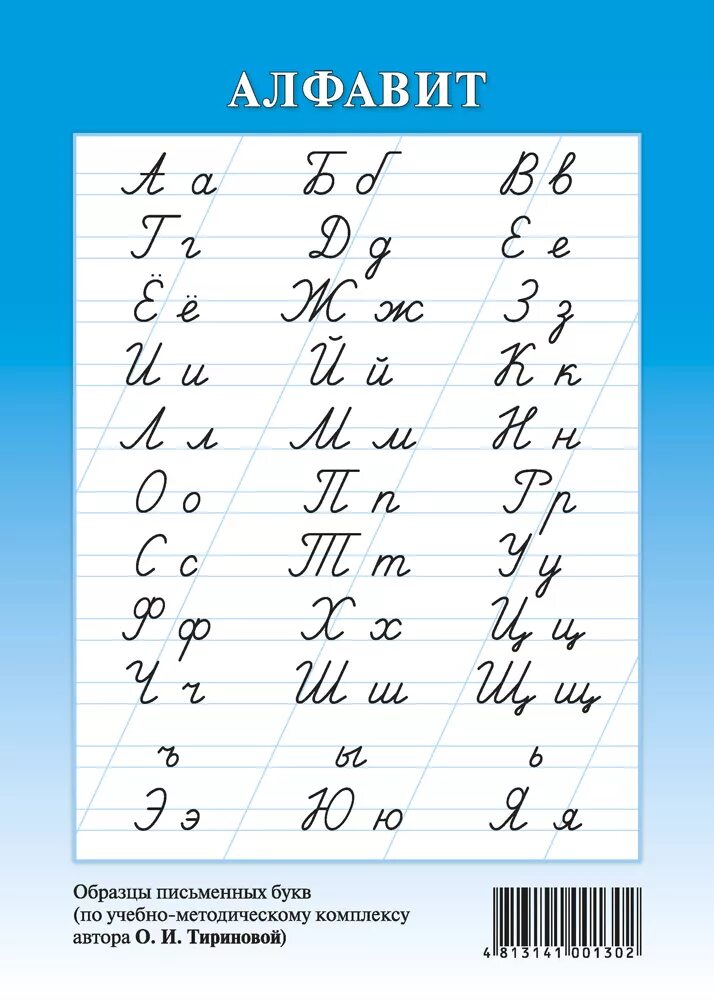 АЛФАВИТ
А а Б б В в
Г г Д д Е е
Ё ё Ж ж З з
И и Й й К к
Л л М м Н н
О о П п Р р
С с Т т У у
Ф ф Х х Ц ц
Ч ч Ш ш Щ щ
ъ ы ь
Э э Ю ю Я я
Образцы письменных букв
(по учебно-методическому комплексу
автора О. И. Тириновой)
4 813141 001302